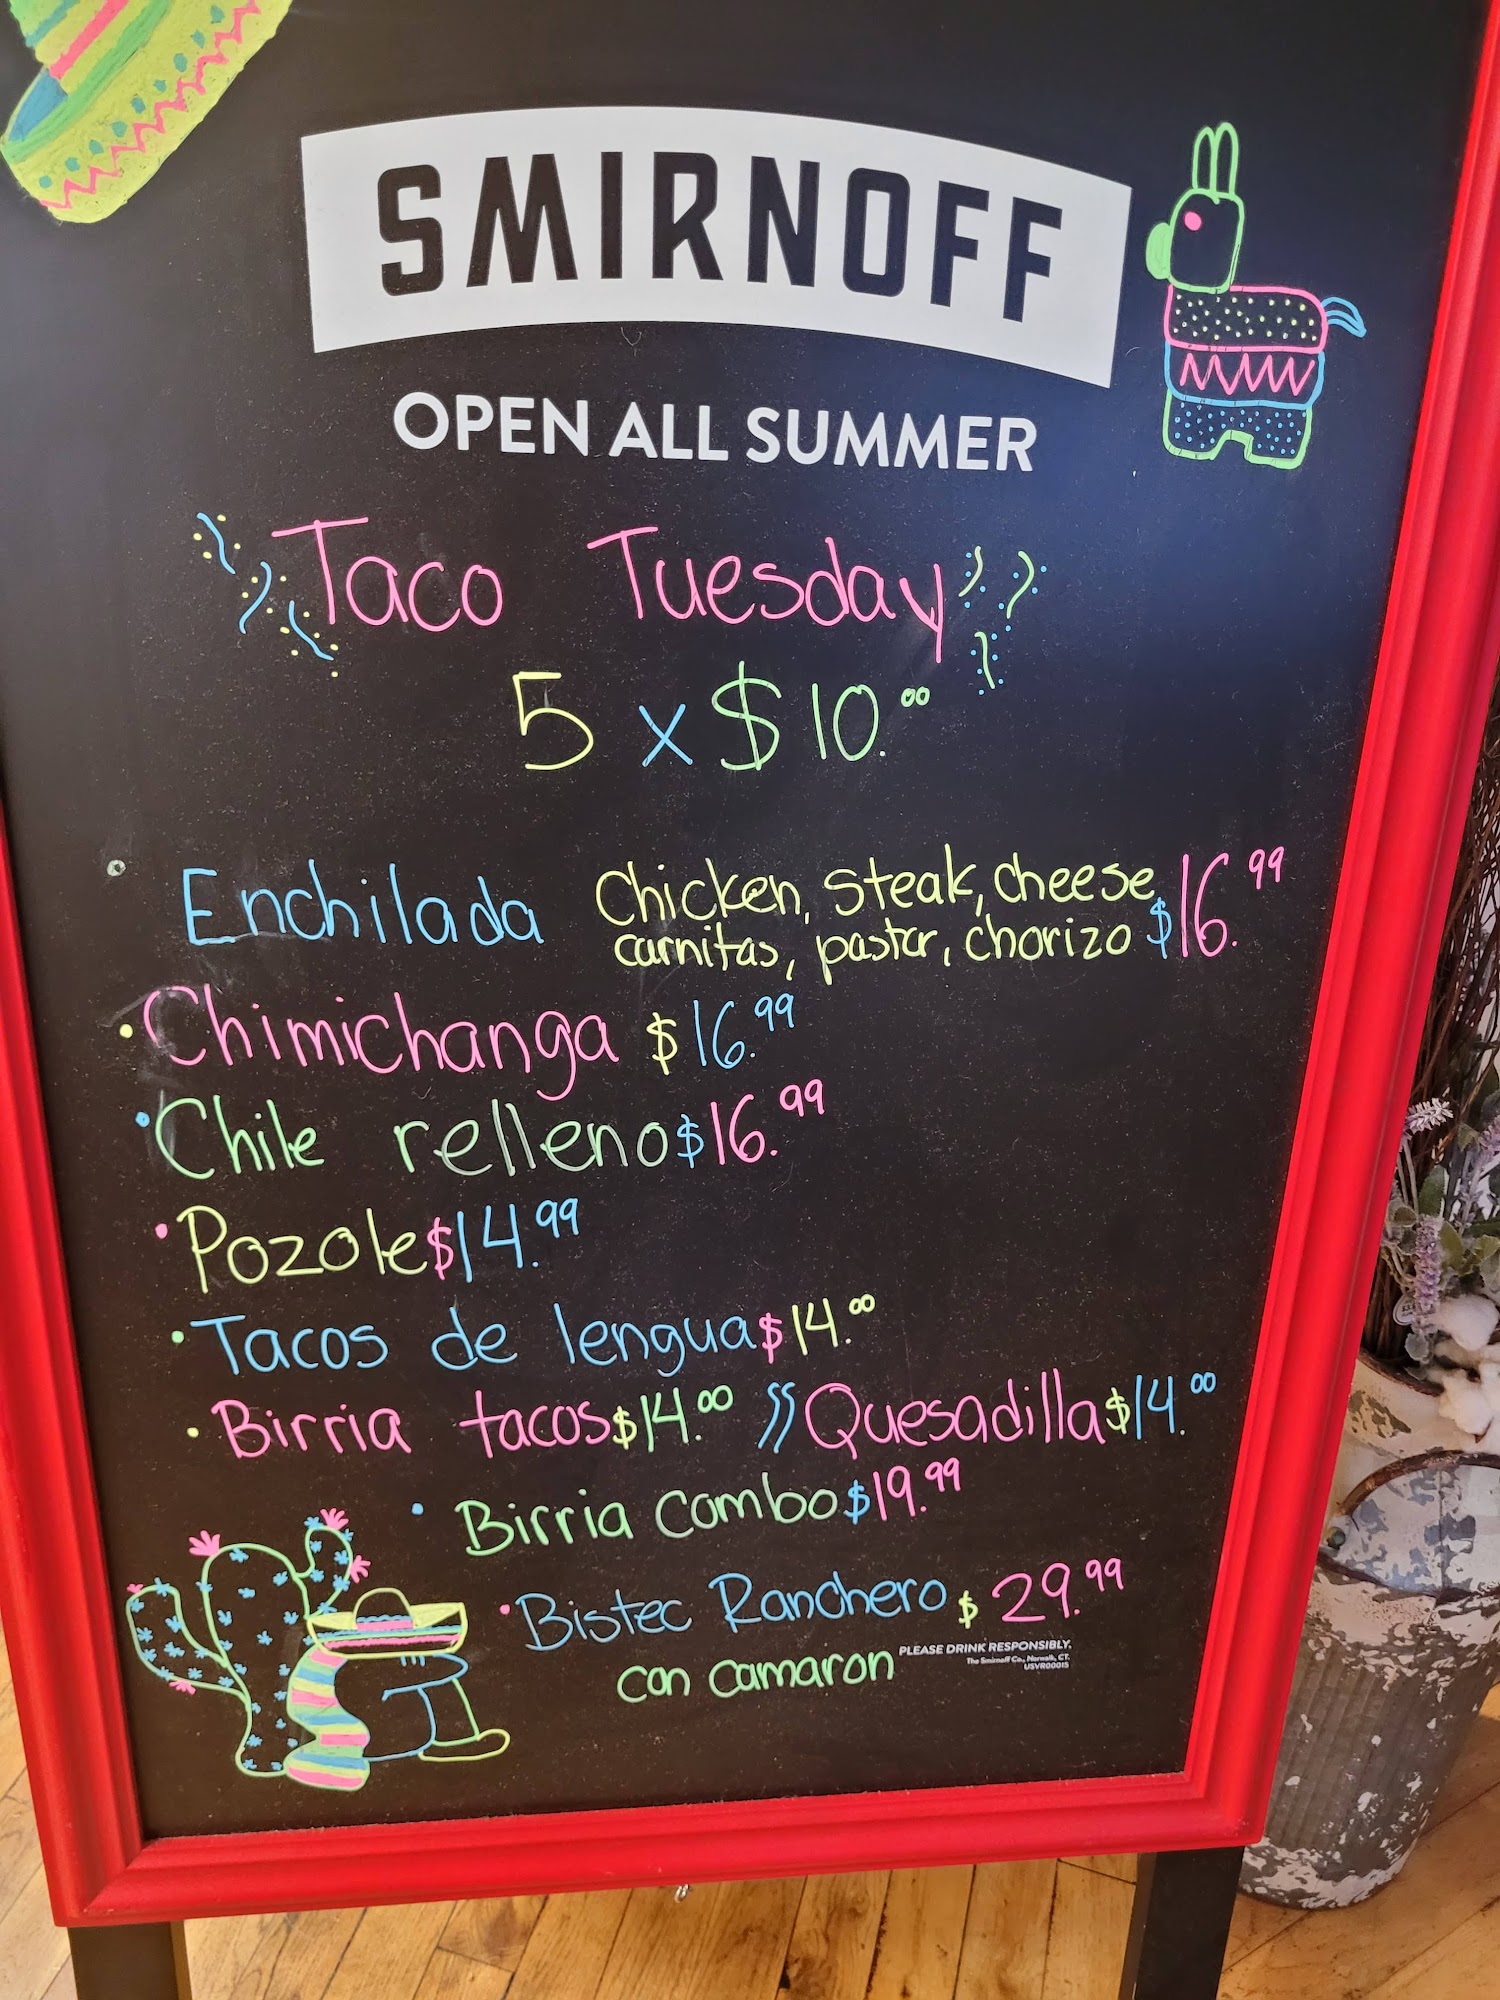 SMIRNOFF
OPEN ALL SUMMER
Taco Tuesday
5 x $10.00
Enchilada Chicken, Steak, cheese
carnitas, pastor, chorizo $16.99
Chimichanga $16.99
Chile relleno $16.99
Pozole $14.99
Tacos de lengua $14.00
Birria tacos $14.00 Quesadilla $14.00
Birria combo $19.99
Bistec Ranchero $29.99
con camaron
PLEASE DRINK RESPONSIBLY.
The Smirnoff Co., Norwalk, CT.
USVR00015